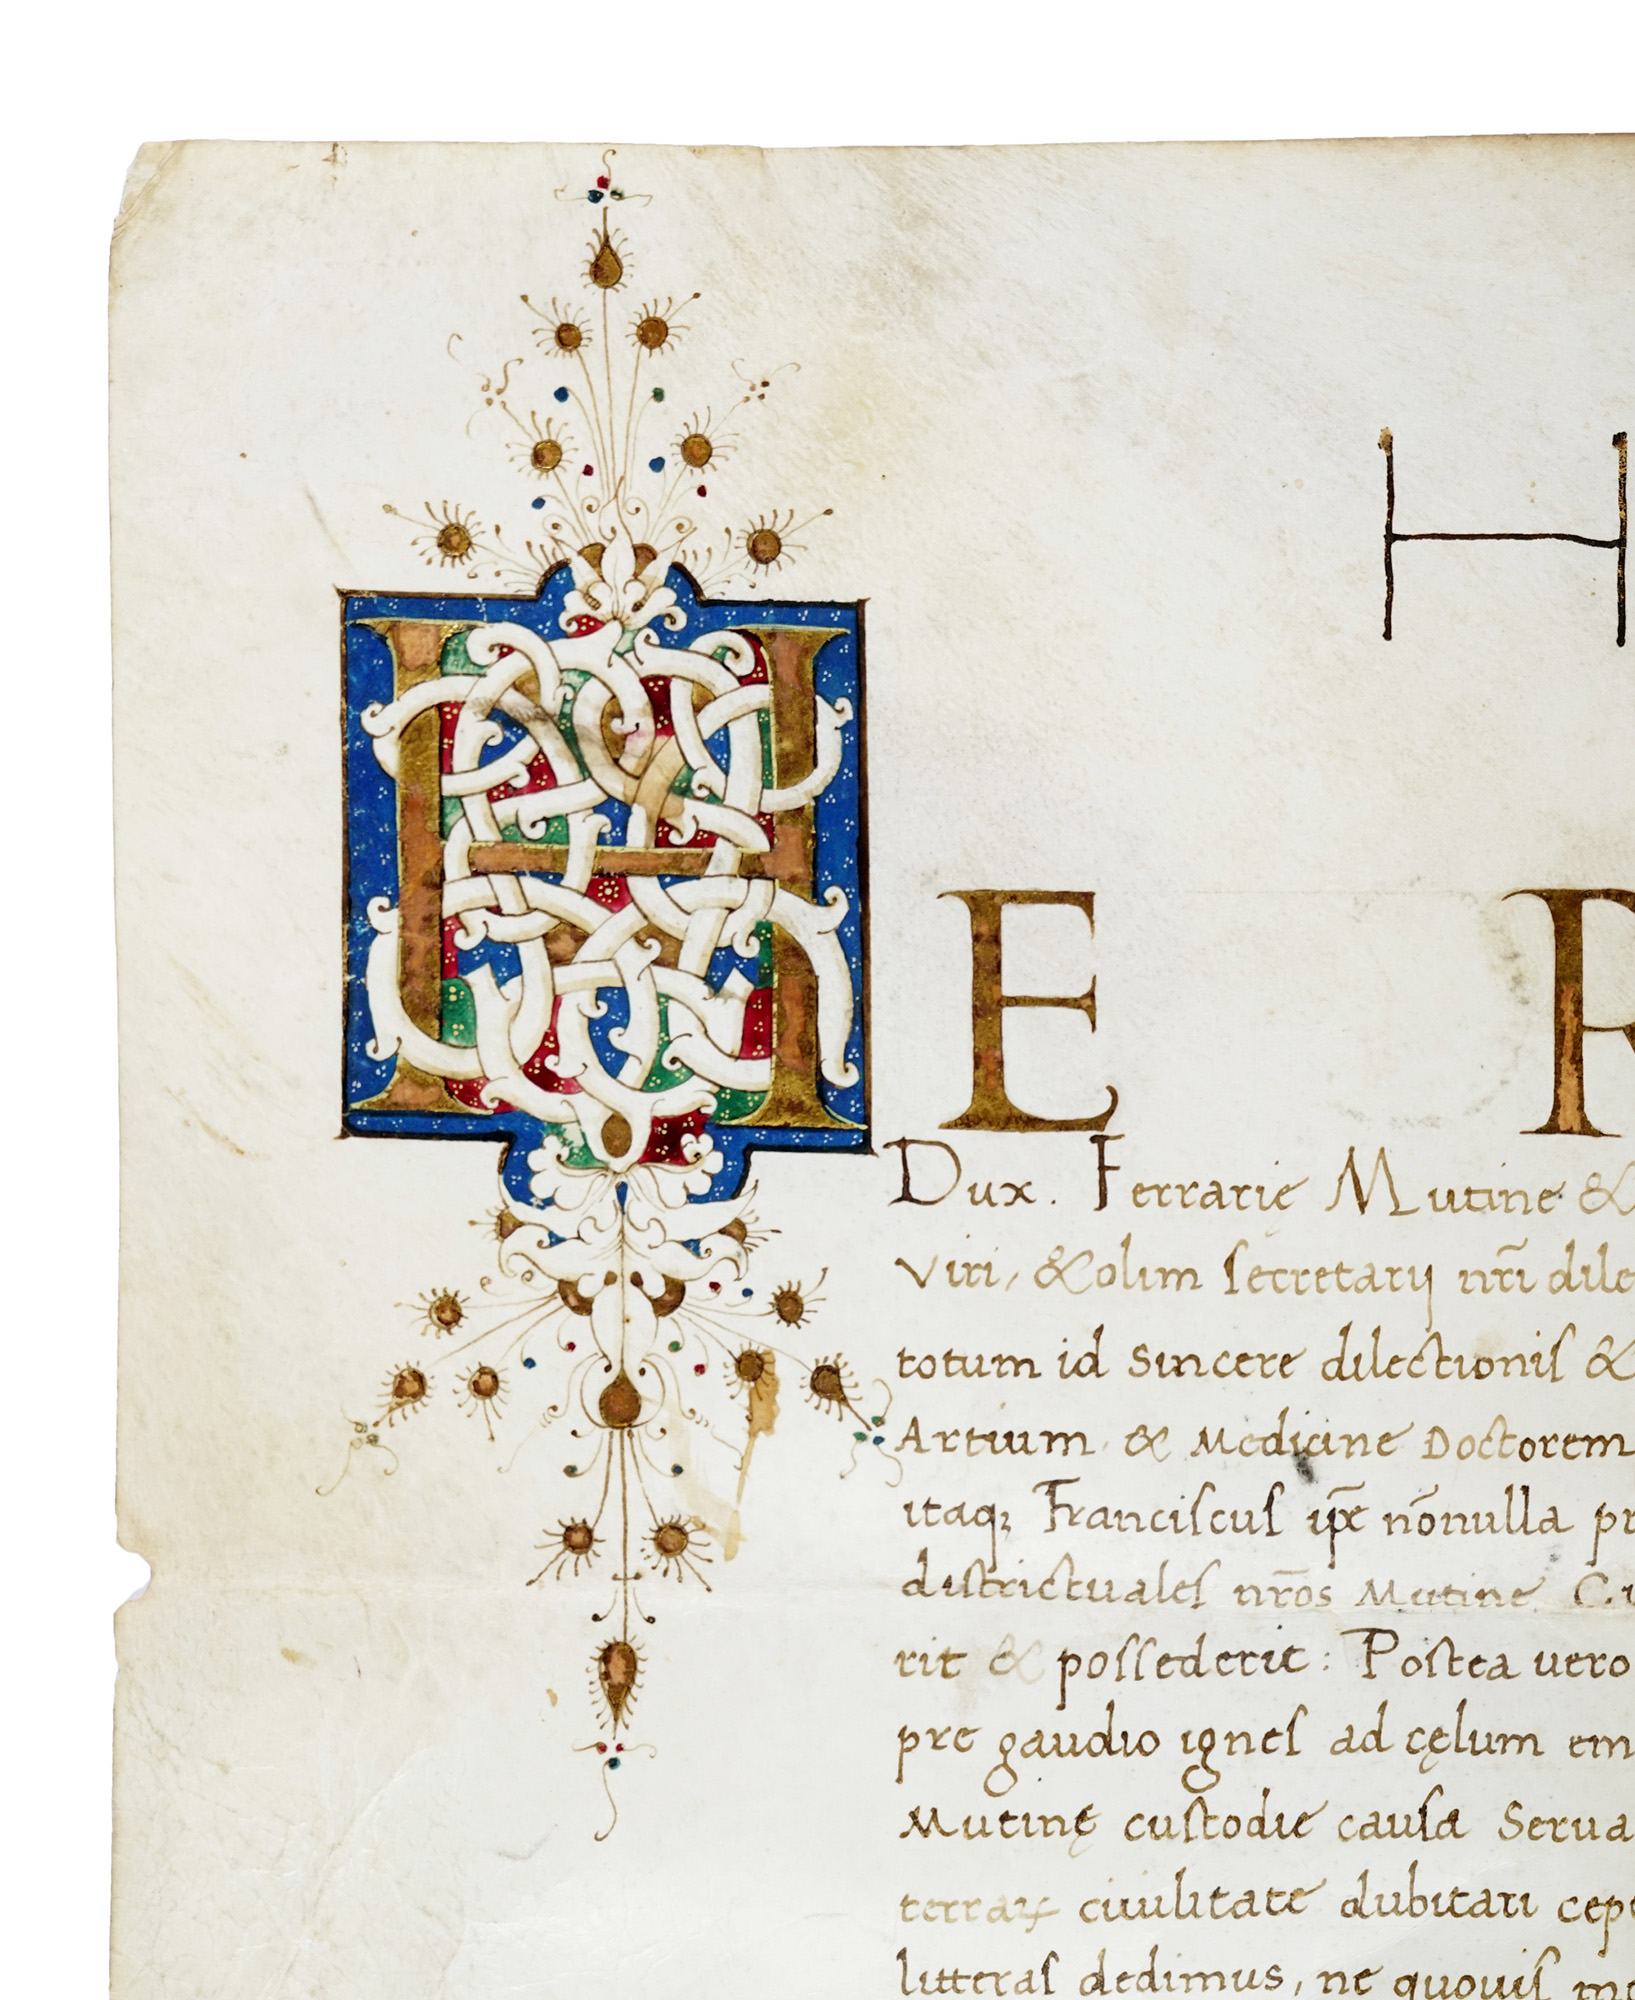 H
H E R
Dux. Ferrarię Mutine &
Viri, & olim ſecretarij nr̄i dile
totum id sincere dilectioniſ &
Artium & Medicine Doctorem
itaqꝫ Franciſcuſ ip̄e nōnulla pr
diſtrictualeſ nr̄os Mutine
rit & poſſederit : Poſtea uero
pre gaudio igneſ ad cęlum em
Mutinę cuſtodie cauſa Serua
terraꝝ ciuilitate dubitari cep
litteraſ dedimus, ne quouiſ mo